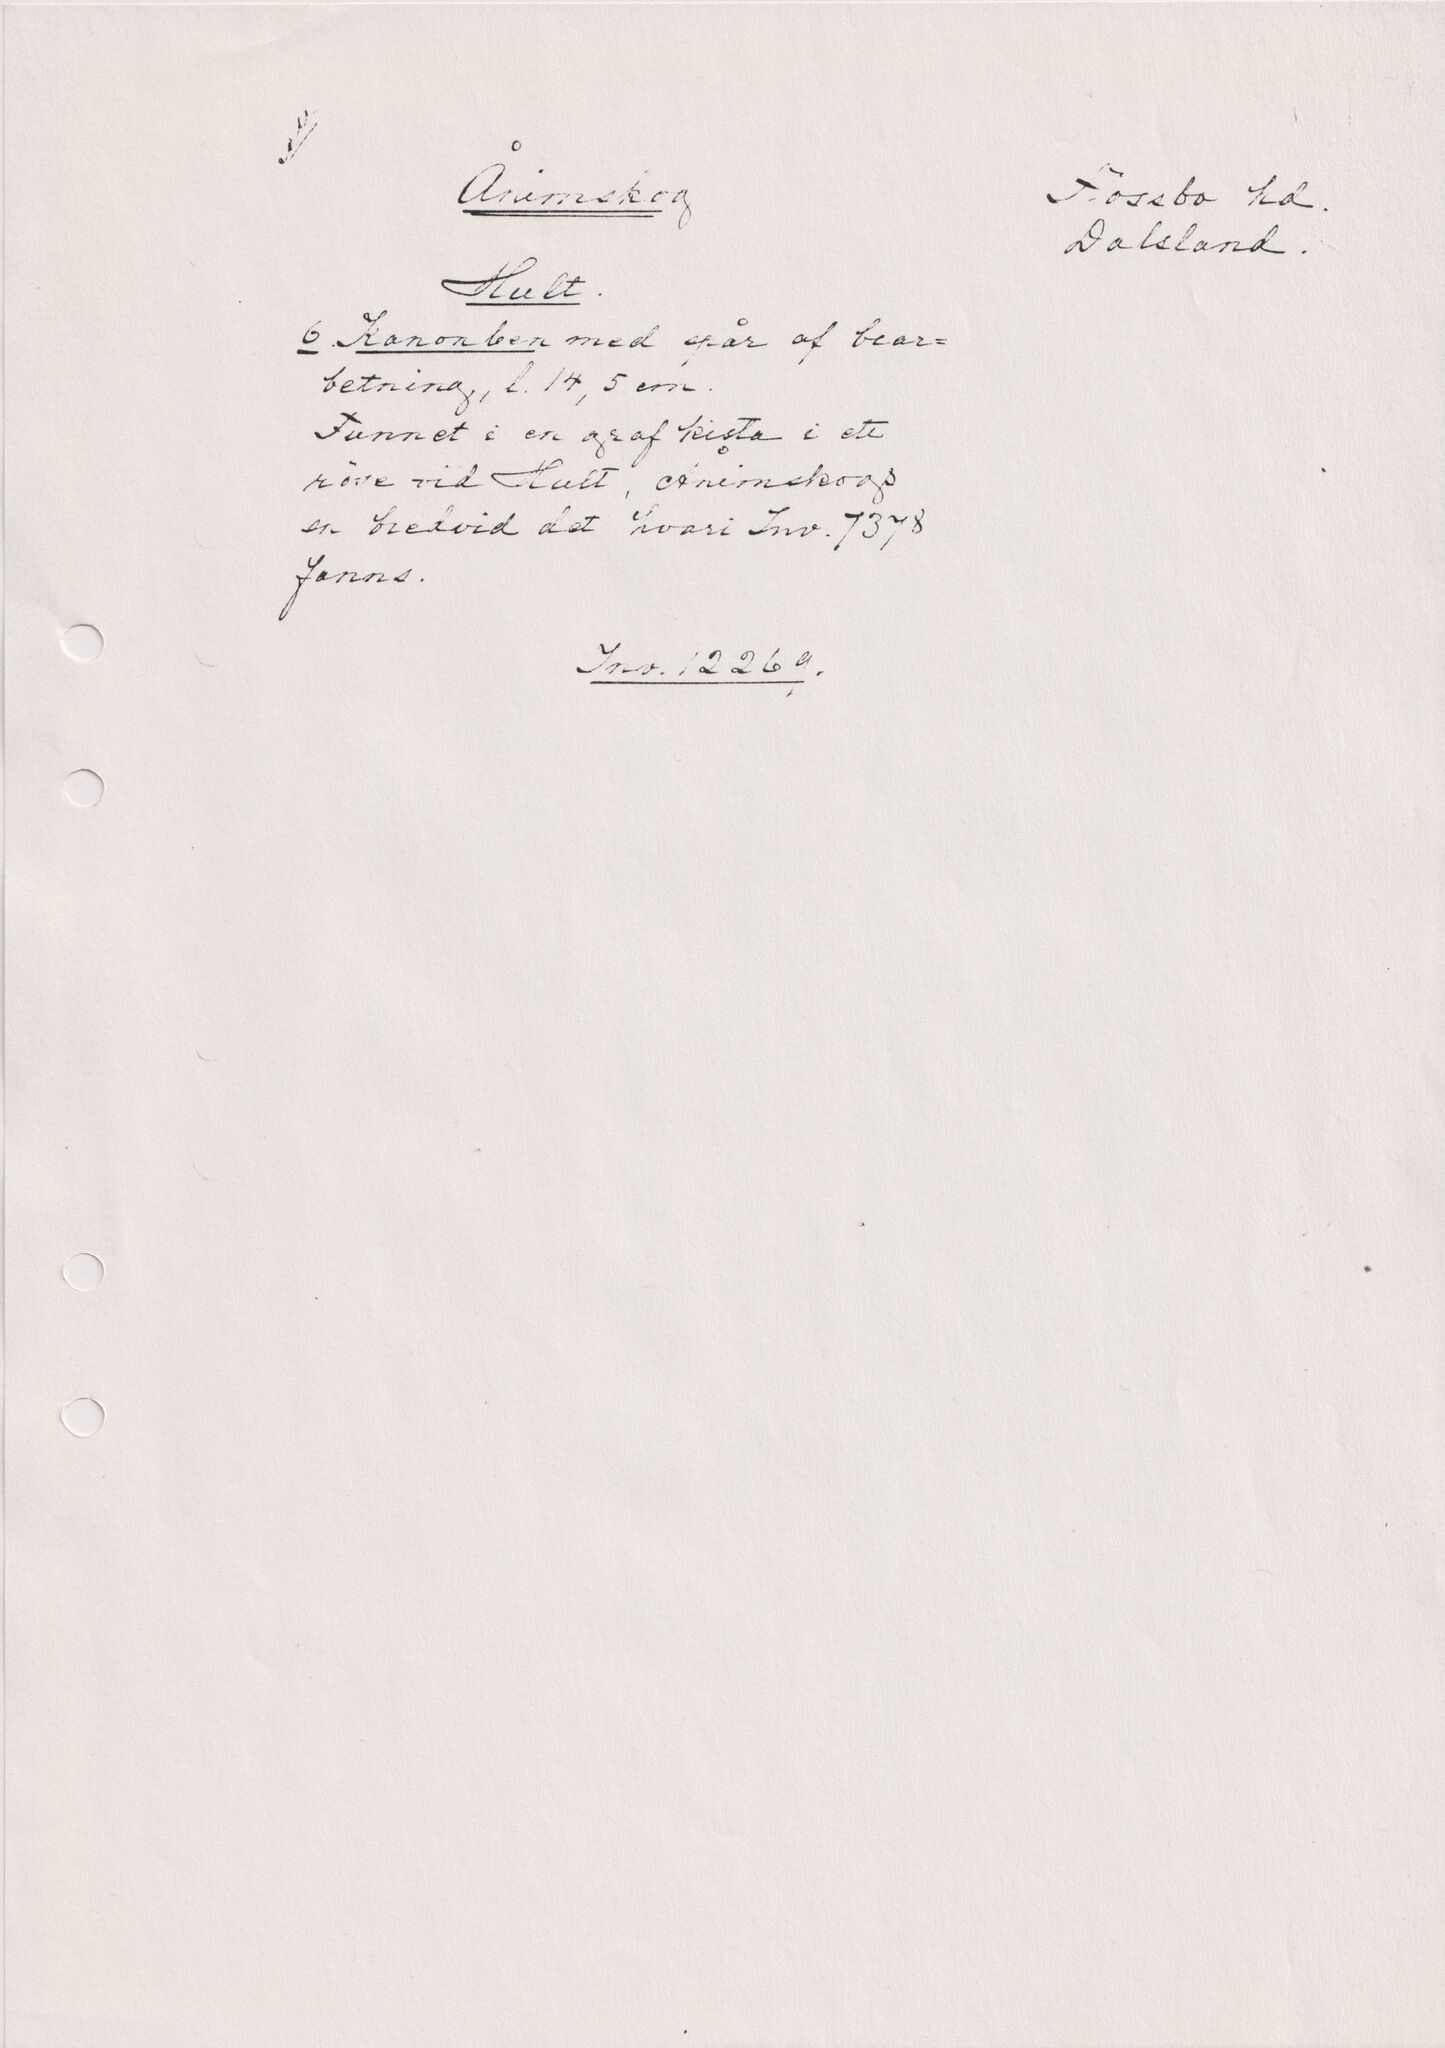 Ånimskog
Tössbo hd.
Dalsland.
Hult.
6 Kanonben med spår af bear=
betning, l. 14,5 cm.
Funnet i en graf kista i ett
röse vid Hult, Ånimskogs
sn bredvid det hvari Inv. 7378
fanns.
Inv. 12269.